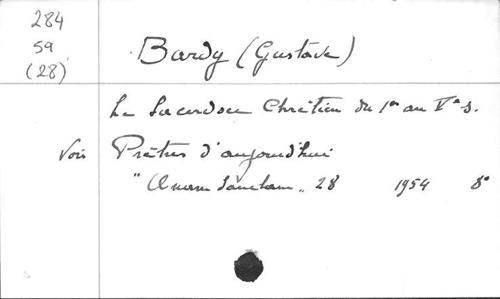 284
59
(28)
Bardy (Gustave)
Le Sacerdoce Chrétien du 1er au Ve s.
Voir Prêtres d'aujourd'hui
"Unam Sanctam" 28 1954 8°